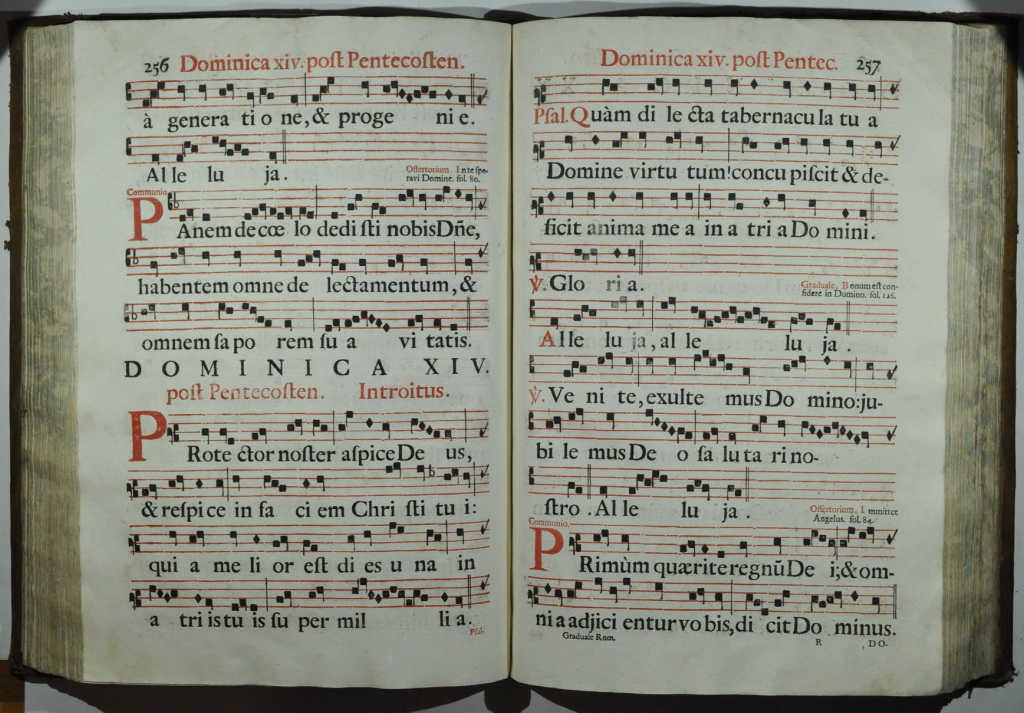 256 Dominica xiv. poſt Pentecoſten.
à genera ti o ne, & proge ni e.
Al le lu ja.
Offertorium. In te ſpe-
ravi Domine. fol. 80.
Communio.
PAnem de cœ lo dedi ſti nobis Dñe,
habentem omne de lectamentum, &
omnem ſa po rem ſu a vi tatis.
DOMINICA XIV.
poſt Pentecoſten. Introitus.
PRote ctor noſter aſpice De us,
& reſpi ce in fa ci em Chri ſti tu i:
qui a me li or eſt di es u na in
a tri is tu is ſu per mil li a.
Pſal.
Dominica xiv. poſt Pentec. 257
Pſal. Quàm di le cta tabernacu la tu a
Domine virtu tum! concu piſcit & de-
ficit anima me a in a tri a Do mini.
℣. Glo ri a.
Graduale, Bonum eſt con-
fidere in Domino. fol. 126.
Al le lu ja, al le lu ja.
℣. Ve ni te, exulte mus Do mino: ju-
bi le mus De o ſa lu ta ri no-
ſtro. Al le lu ja.
Offertorium. Immittet
Angelus. fol. 84.
Communio.
PRimùm quærite regnũ De i; & om-
ni a adjici entur vo bis, di cit Do minus.
Graduale Rom. R DO-